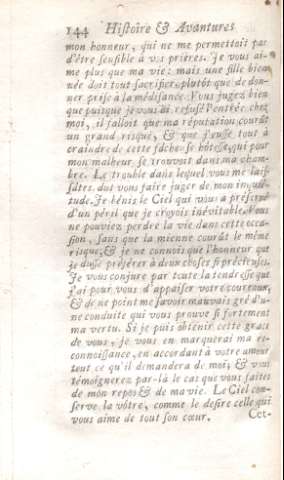 144 Histoire & Avantures
mon honneur, qui ne me permettoit pas
d'être sensible à vos prières. Je vous ai-
me plus que ma vie: mais une fille bien
née doit tout sacrifier, plutôt que de don-
ner prise à la médisance. Vous jugez bien
que puisque je vous ai refusé l'entrée chez
moi, il falloit que ma réputation courût
un grand risque, & que j'eusse tout à
craindre de cette fâcheuse hôtesse, qui pour
mon malheur se trouvoit dans ma cham-
bre. Le trouble dans lequel vous me lais-
sâtes doit vous faire juger de mon inquié-
tude. Je bénis le Ciel qui vous a préservé
d'un péril que je croyois inévitable. Vous
ne pouviez perdre la vie dans cette occa-
sion, sans que la mienne courût le même
risque, & je ne connois que l'honneur que
je dusse préférer à deux choses si précieuses.
Je vous conjure par toute la tendresse que
j'ai pour vous d'appaiser votre couroux,
& de ne point me savoir mauvais gré d'u-
ne conduite qui vous prouve si fortement
ma vertu. Si je puis obtenir cette grace
de vous, je vous en marquerai ma re-
connoissance, en accordant à votre amour
tout ce qu'il demandera de moi, & vous
témoignerez par-là le cas que vous faites
de mon repos & de ma vie. Le Ciel con-
serve la vôtre, comme le desire celle qui
vous aime de tout son cœur.
Cet-